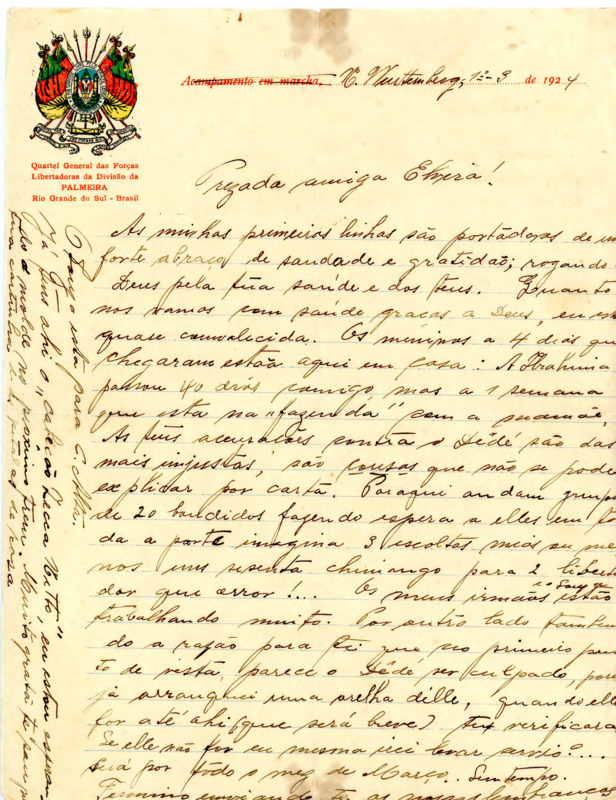 Acampamento em marcha. N. Wurttemberg, 1-3 de 1924
Quartel General das Forças
Libertadoras da Divisão da
PALMEIRA
Rio Grande do Sul - Brasil
Prezada amiga Elvira!
As minhas primeiras linhas são portadoras de um
forte abraço de saudade e gratidão; rogando a
Deus pela tua saúde e dos teus. Quanto
nos vamos com saúde graças a Deus, eu estou
quase convalecida. Os meninos a 4 dias que
chegaram estão aqui em casa: A
passou 40 dias comigo mas a 1 semana
que esta na "fazenda" com a mamãe,
As tuas acusações contra o Dédé são das
mais injustas, são cousas que não se pode
explicar por carta. Por aqui andam grupos
de 20 bandidos fazendo espera a elles em to
da a parte imagina 3 escoltas mais ou me
nos uns sesenta chimango para 2 liberta
dor que error!... Os meus irmãos estão
trabalhando muito. Por outro lado tambem
do a razão para ti que no primeiro pon
to de vista, parece o Dédé ser culpado, pois
já arranquei uma orelha delle, quando elle
for até ahi (que será breve) tu verificara
Se elle não for eu mesma irei levar
será por todo o mez de Março. Sem tempo.
Termino enviando te as nossas lembranças
Faço esta para C. Alta.
Já tens ahi o "cabeção Zecca Netto", eu estou
do o molde no proximo trem. Muito grata te
tua